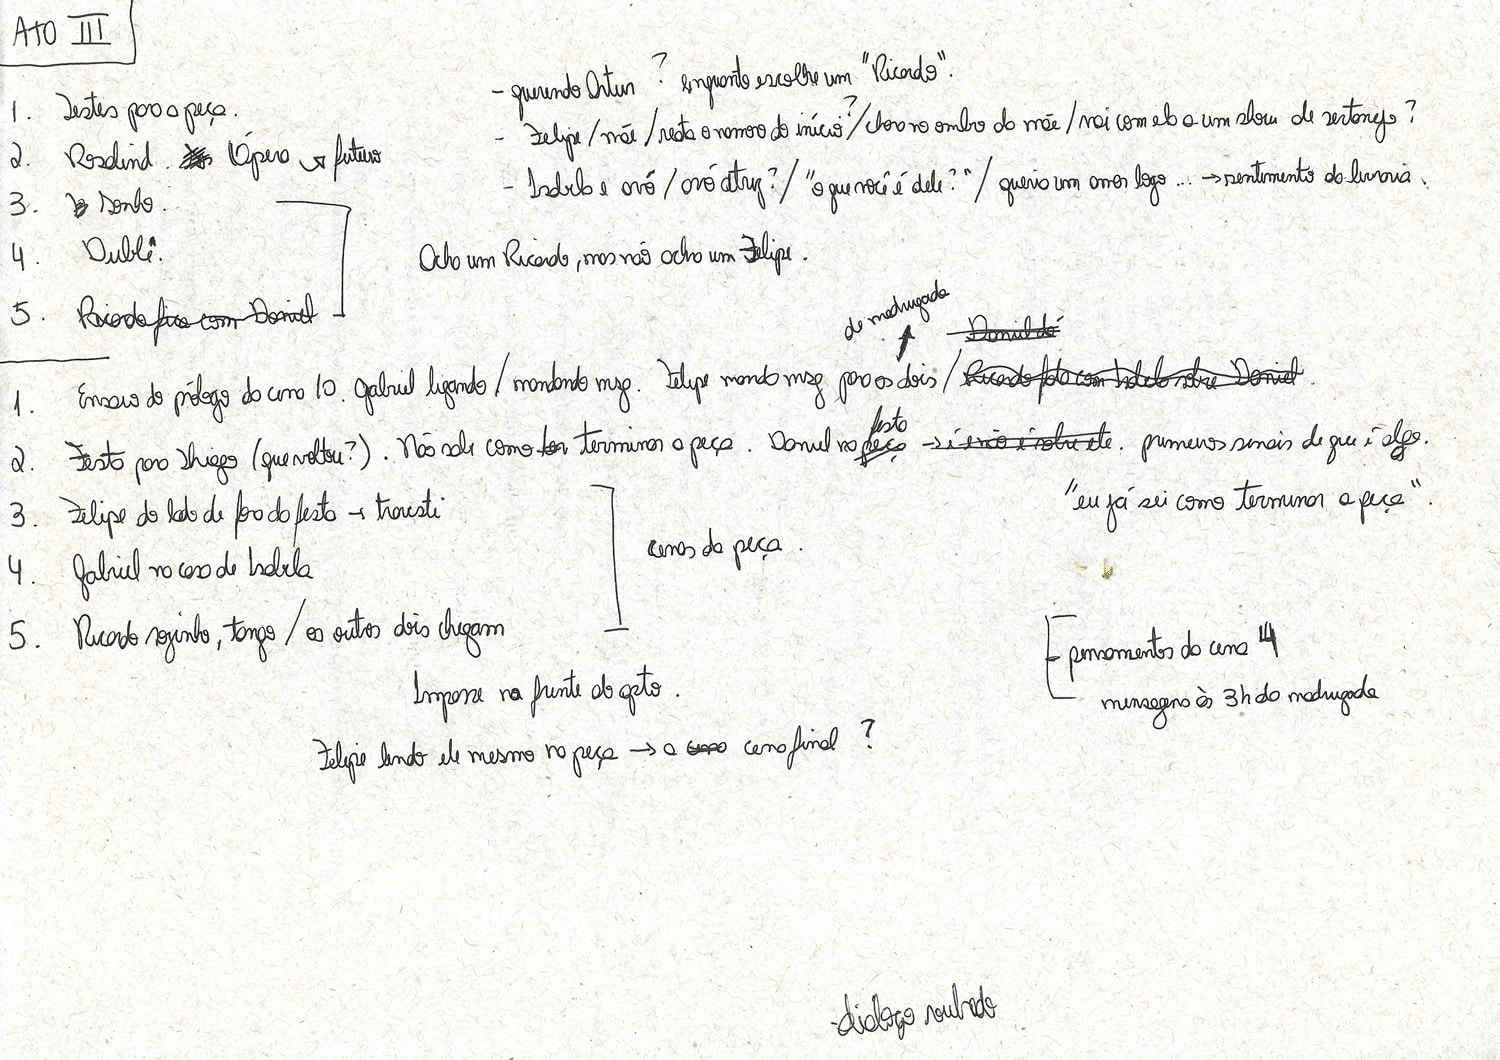 ATO III
1. Testes para a peça.
2. Rosalind. Ópera → futuro
3. Sonho.
4. Dublê.
5. Ricardo fica com Daniel
- querendo Artur? enquanto escolhe um "Ricardo".
- Felipe / mãe / resta o namoro do início? / chora no ombro da mãe / vai com ela a um show de sertanejo?
- Isabela e avó / avó atriz? / "o que você é dele?" / queria um amor logo... → sentimento da livraria.
Acho um Ricardo, mas não acho um Felipe.
de madrugada
Daniel dá
1. Ensaio do prólogo da cena 10. Gabriel ligando / mandando msg. Felipe manda msg para os dois / Ricardo fala com Isabela sobre Daniel.
festa
2. Festa para Thiago (que voltou?). Não sabe como terminar a peça. Daniel na peça → primeiros sinais de que é algo.
"eu já sei como terminar a peça".
3. Felipe do lado de fora da festa → travesti
4. Gabriel na casa de Isabela
cenas da peça.
5. Ricardo sozinho, tango / os outros dois chegam
Impasse na frente do gato.
Felipe lendo ele mesmo na peça → a cena final?
- pensamentos da cena 4
mensagens às 3h da madrugada
- diálogo roubado